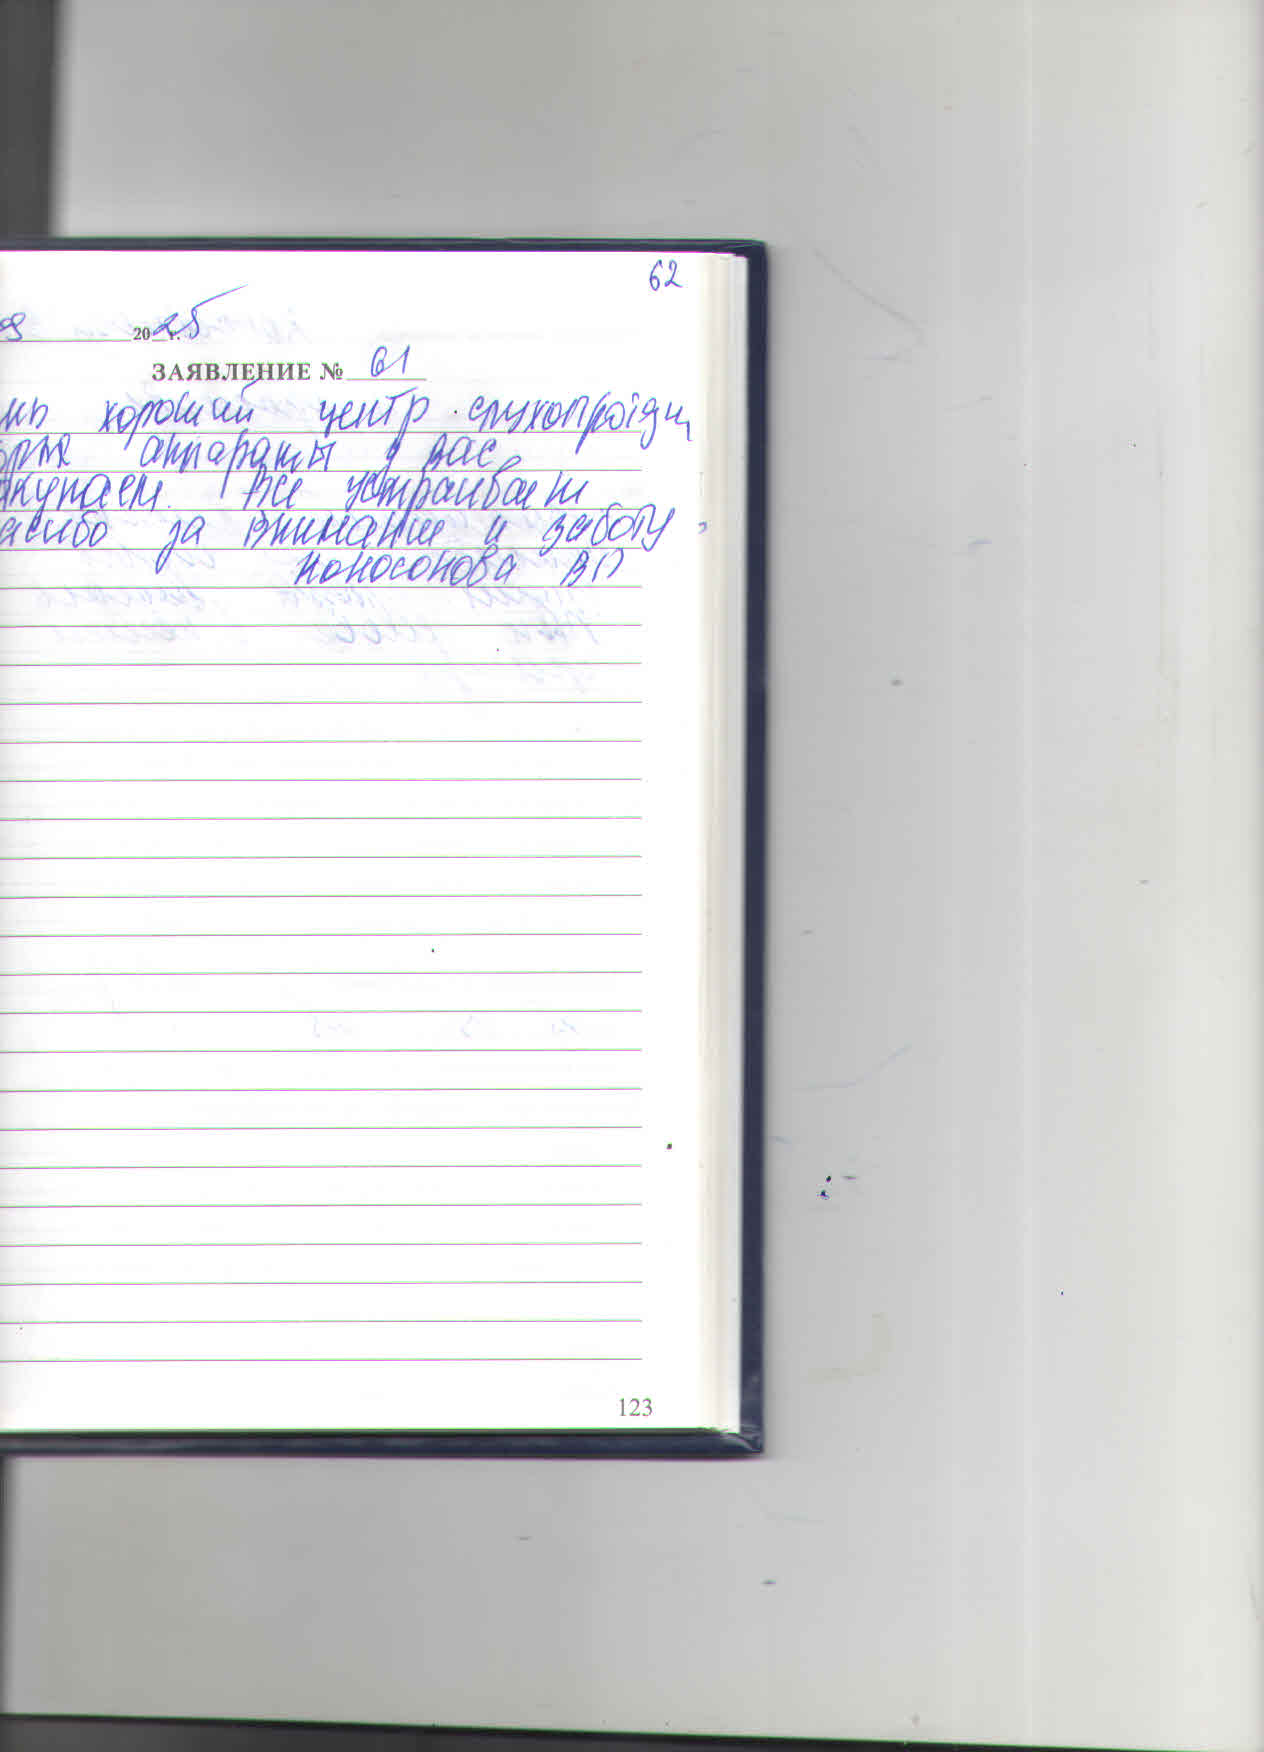 62
9 2025 г.
ЗАЯВЛЕНИЕ № 61
нь хороший центр слухопротезир
аппараты у вас
окупаем. Все устраивает
асибо за внимание и заботу
Коносонова ВП
123